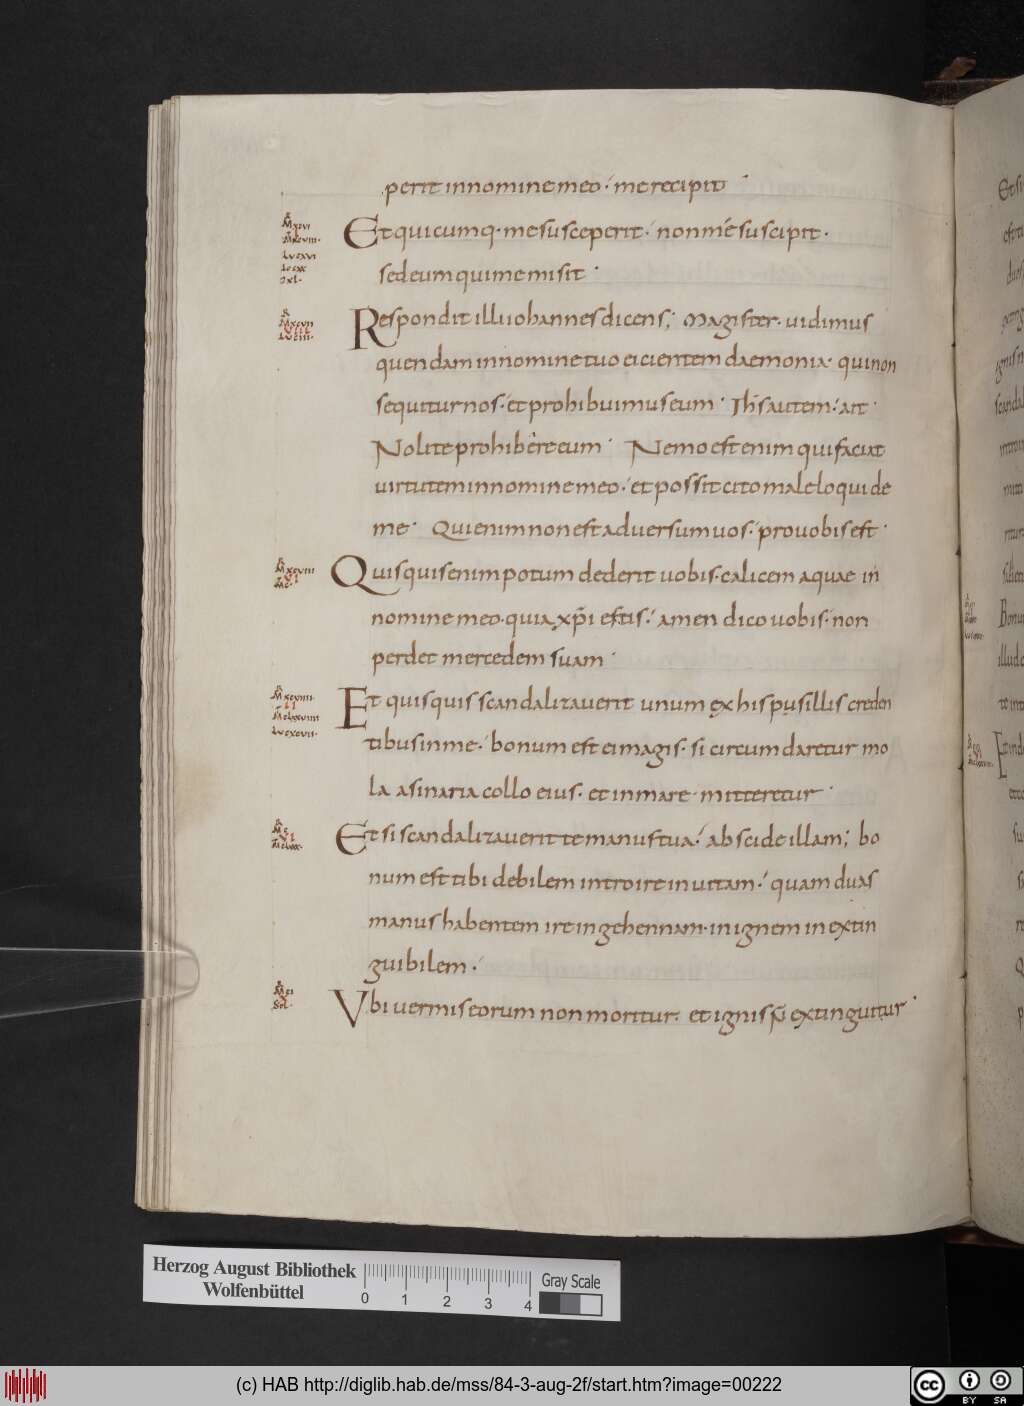 perit in nomine meo · me recipit ·
Et quicumq· me susceperit · non mé suscipit ·
sed eum qui me misit ·
Respondit illi iohannes dicens; Magister · uidimus
quendam in nomine tuo eicientem daemonia · qui non
sequitur nos · et prohibuimus eum · Ihs autem · ait ·
Nolite prohibere eum · Nemo est enim qui faciat
uirtutem in nomine meo · et possit cito male loqui de
me · Qui enim non est aduersum uos · pro uobis est ·
Quisquis enim potum dederit uobis · calicem aquae in
nomine meo · quia xpi estis · amen dico uobis · non
perdet mercedem suam ·
Et quisquis scandalizauerit unum ex his pusillis creden
tibus in me · bonum est ei magis · si circumdaretur mo
la asinaria collo eius · et in mare · mitteretur ·
Et si scandalizauerit te manus tua · abscide illam; bo
num est tibi debilem introire in uitam · quam duas
manus habentem ire in gehennam · in ignem inextin
guibilem ·
Vbi uermis eorum non moritur · et ignis extinguitur ·
Herzog August Bibliothek
Wolfenbüttel
0 1 2 3 4
Gray Scale
(c) HAB http://diglib.hab.de/mss/84-3-aug-2f/start.htm?image=00222
cc BY SA